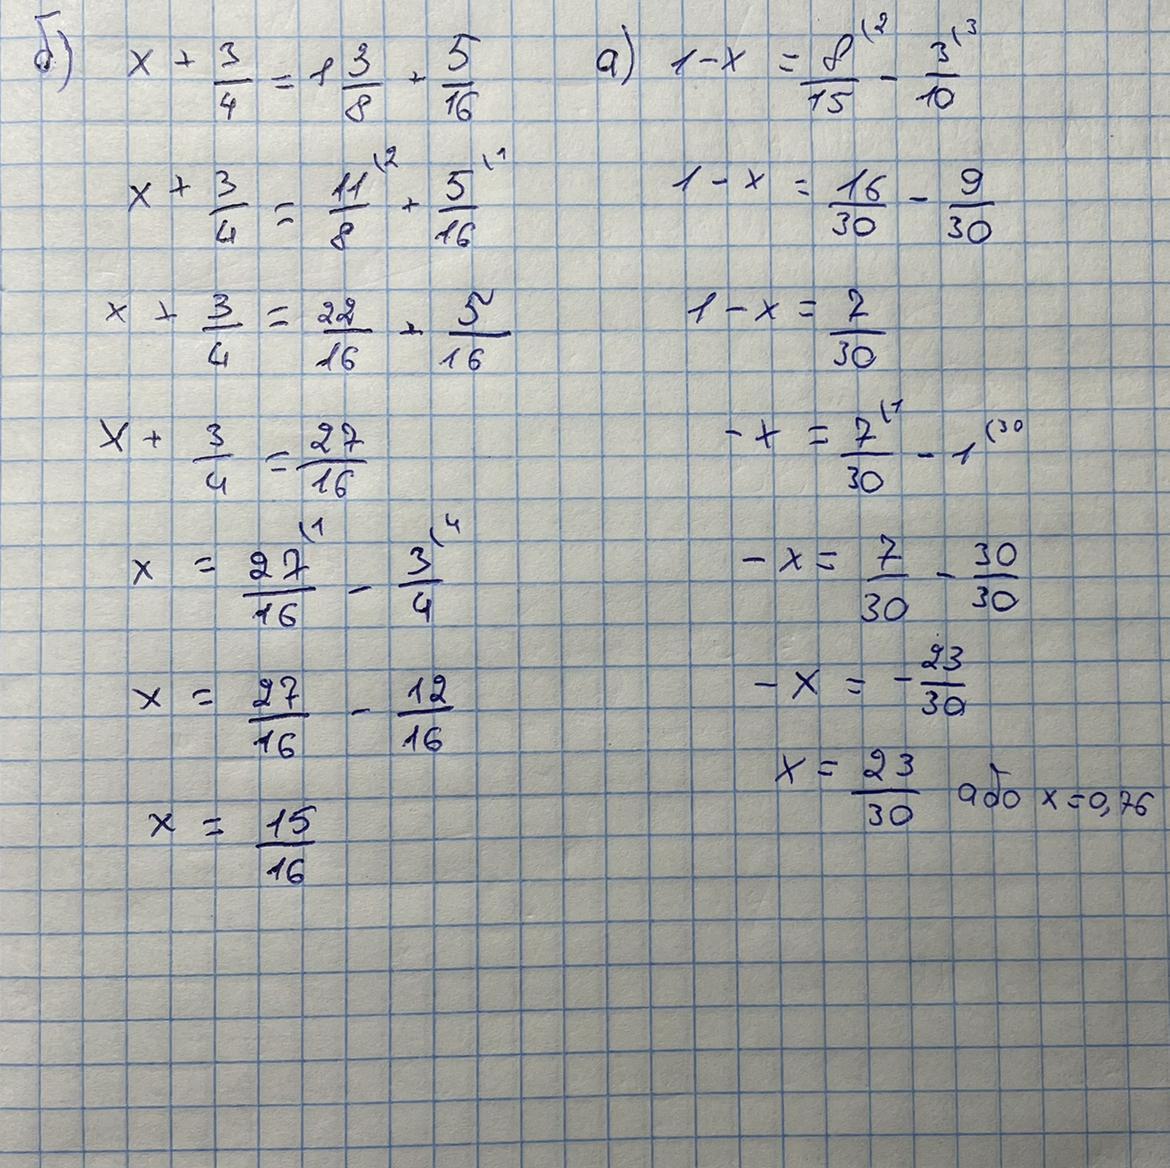 б) x + 3/4 = 1 3/8 + 5/16
x + 3/4 = 11/8 (2 + 5/16 (1
x + 3/4 = 22/16 + 5/16
x + 3/4 = 27/16
x = 27/16 (1 - 3/4 (4
x = 27/16 - 12/16
x = 15/16
а) 1 - x = 8/15 (2 - 3/10 (3
1 - x = 16/30 - 9/30
1 - x = 7/30
- x = 7/30 (1 - 1 (30
- x = 7/30 - 30/30
- x = - 23/30
x = 23/30 або x = 0,76